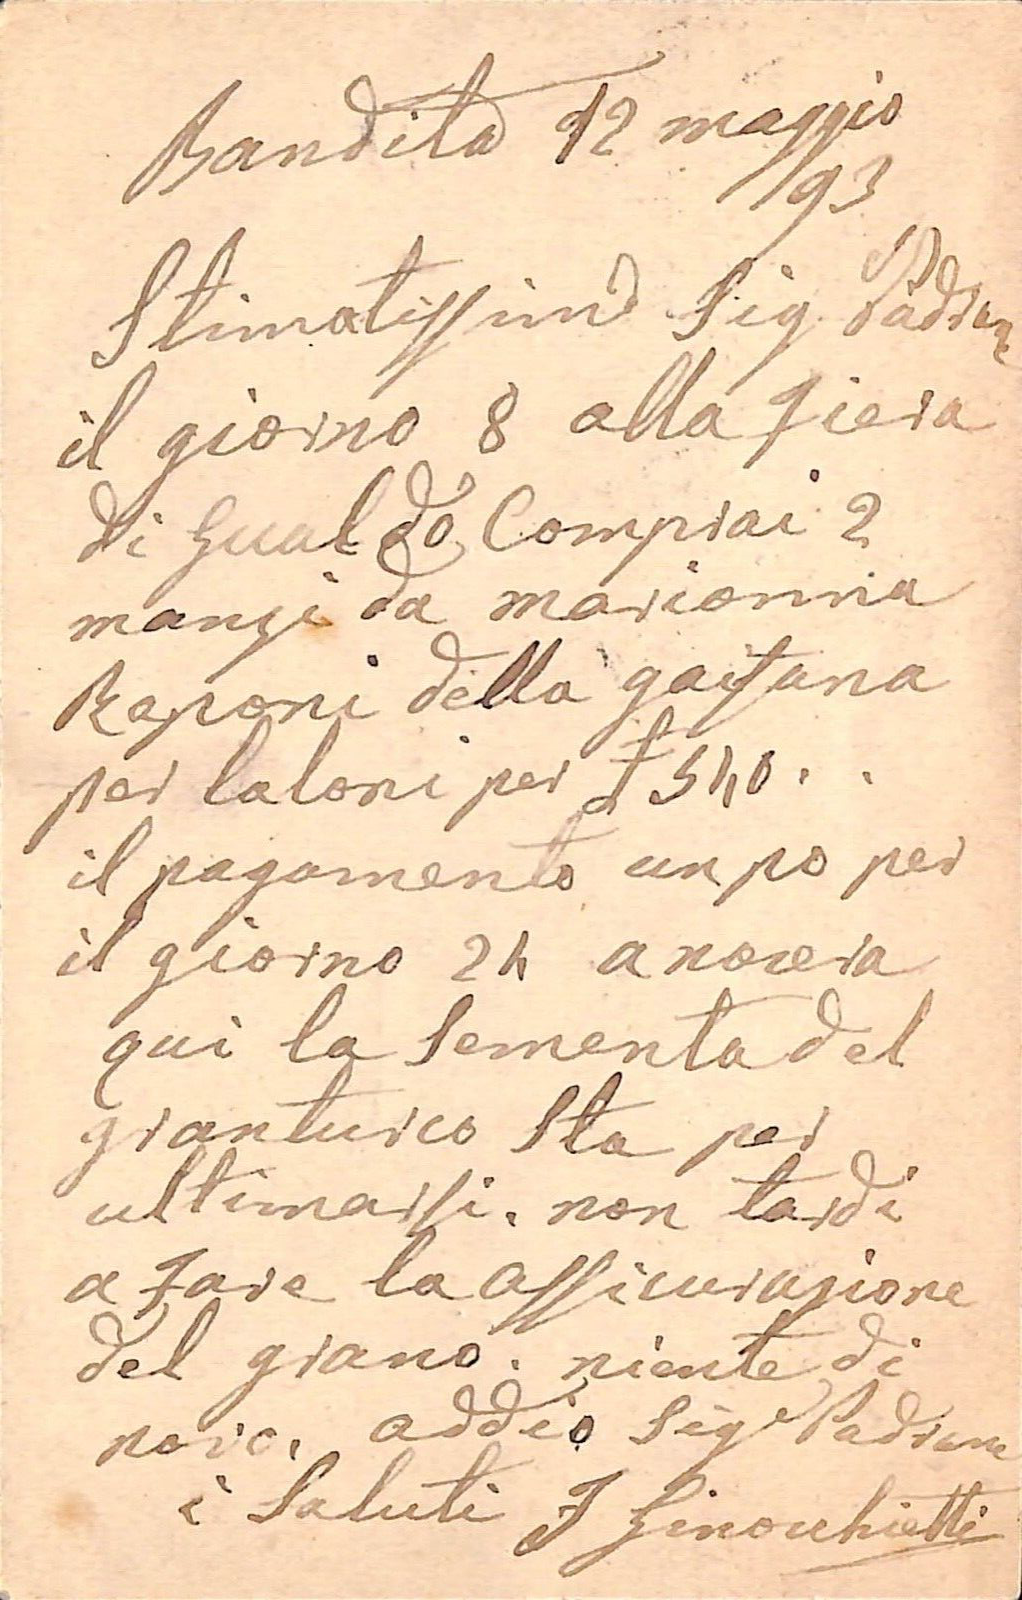 Bandita 12 maggio
93
Stimatissimo Sig Padrone
il giorno 8 alla fiera
di Gualdo Comprai 2
manzi da marionna
Raponi della gaifana
per laloni per £ 540. .
il pagamento un po per
il giorno 24 a nocera
qui la Sementa del
granturco Sta per
ultimarsi. non tardi
a fare la assicurazione
del grano. niente di
novo. addio Sige Padrone
i Saluti F Ginocchietti